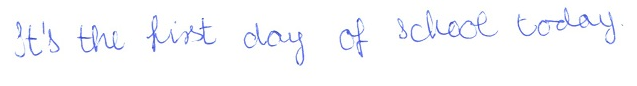 It's the first day of school today.